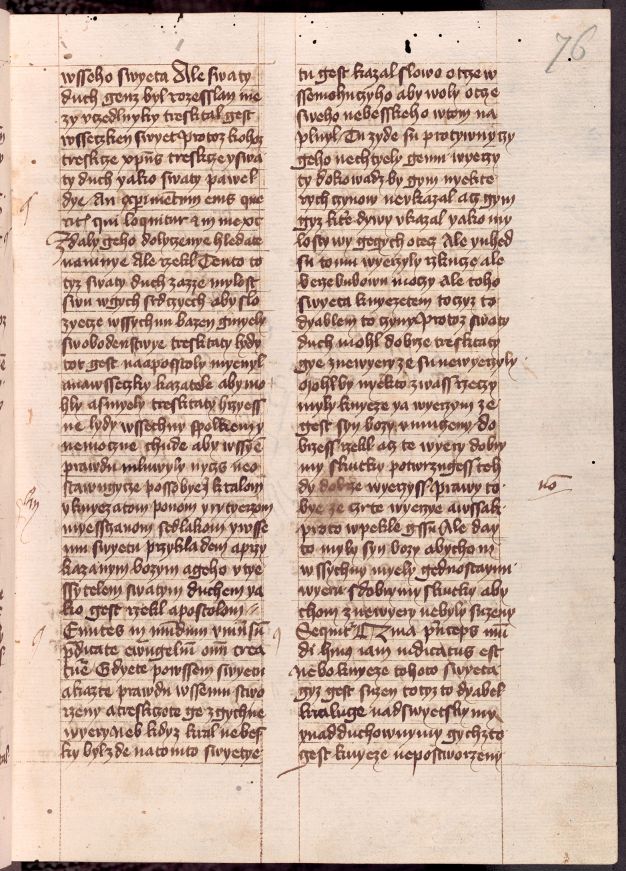 76
wsseho swyeta Ale swaty
duch genz byl rozesslan me
zy vczedlnyky tresktal gest
wsseczken swyet Protoz kohoz
treskcze xpus treskcze yswa
ty duch yako swaty pawel
dye An experimetum eius que
ritis qui loquitur in me xpc
Zdaly geho dolyczenye hledate
namnye Ale rzekl Tento to
tyz swaty duch zazze mylost
swu wgych srdczych aby slo
zyecze wssychnu bazen gmyely
swobodenstwye tresktaty kdy
tot gest naapossstoly myenyl
anawsseczky kazatele abymo
hly asmyely tresktaty hrzyess
ne lydy wssechny spolkem y
nemoczne chude aby wssye
prawdu mluwyly nyczs neo
stawugycze possobye kralom
yknyezatom ponom yrytyerzom
myessczanom sedlakom ywsse
mu swyetu przykladem aprzy
kazanym bozym ageho vtye
ssytelem swatym duchem ya
ko gest rzekl apostolom
Euntes in mundum vniuersum
predicate ewangelium omni crea
ture Gdyete powssem swyetu
akazte prawdu wssemu stwo
rzeny atresktczete ge zgychne
wyery Neb kdyz kral nebes
ky byl zde natomto swyetye
tu gest kazal slowo otcze w
ssemohuczyho aby woly otcze
sweho nebesskeho wtom na
plnyl Tu zyde su protywnyczy
geho nechtyely gemu wyerzy
ty dokowadz by gym nyekte
rych czynow neukazal az gym
gyz kste dywy vkazal yako my
losty wy gegych otecz Ale yuhed
su tomu wyerzyly rzkucze ale
berze bubowu moczy Ale toho
swyeta knyezetem toczyz to
dyablem to czyny Protoz swaty
duch mohl dobrze tresktaty
gye znewyery ze su newyerzyly
Mohl by nyekto zwass rzeczy
myly knyeze ya wyerzym ze
gest syn bozy vmugemy do
brzess rzekl az te wyery dobry
my skutky potwrzugess teh
dy dobrze wyerzyss Prawy to
bye ze czrte wyerzye awssak
proto wpekle gssu Ale day
to myly syn bozy abychom
wssychny myely gednostaynu
wyeru sdobrymy skutky aby
chom znewyery nebyly suzeny
Sequitur Quia princeps mu
di huius iam iudicatus est
nebo knyeze tohoto swyeta
gyz gest suzen totyz to dyabel
kraluge nadswyetskymy
ynadduchownymy gychz to
gest knyeze nepostworzeny
no